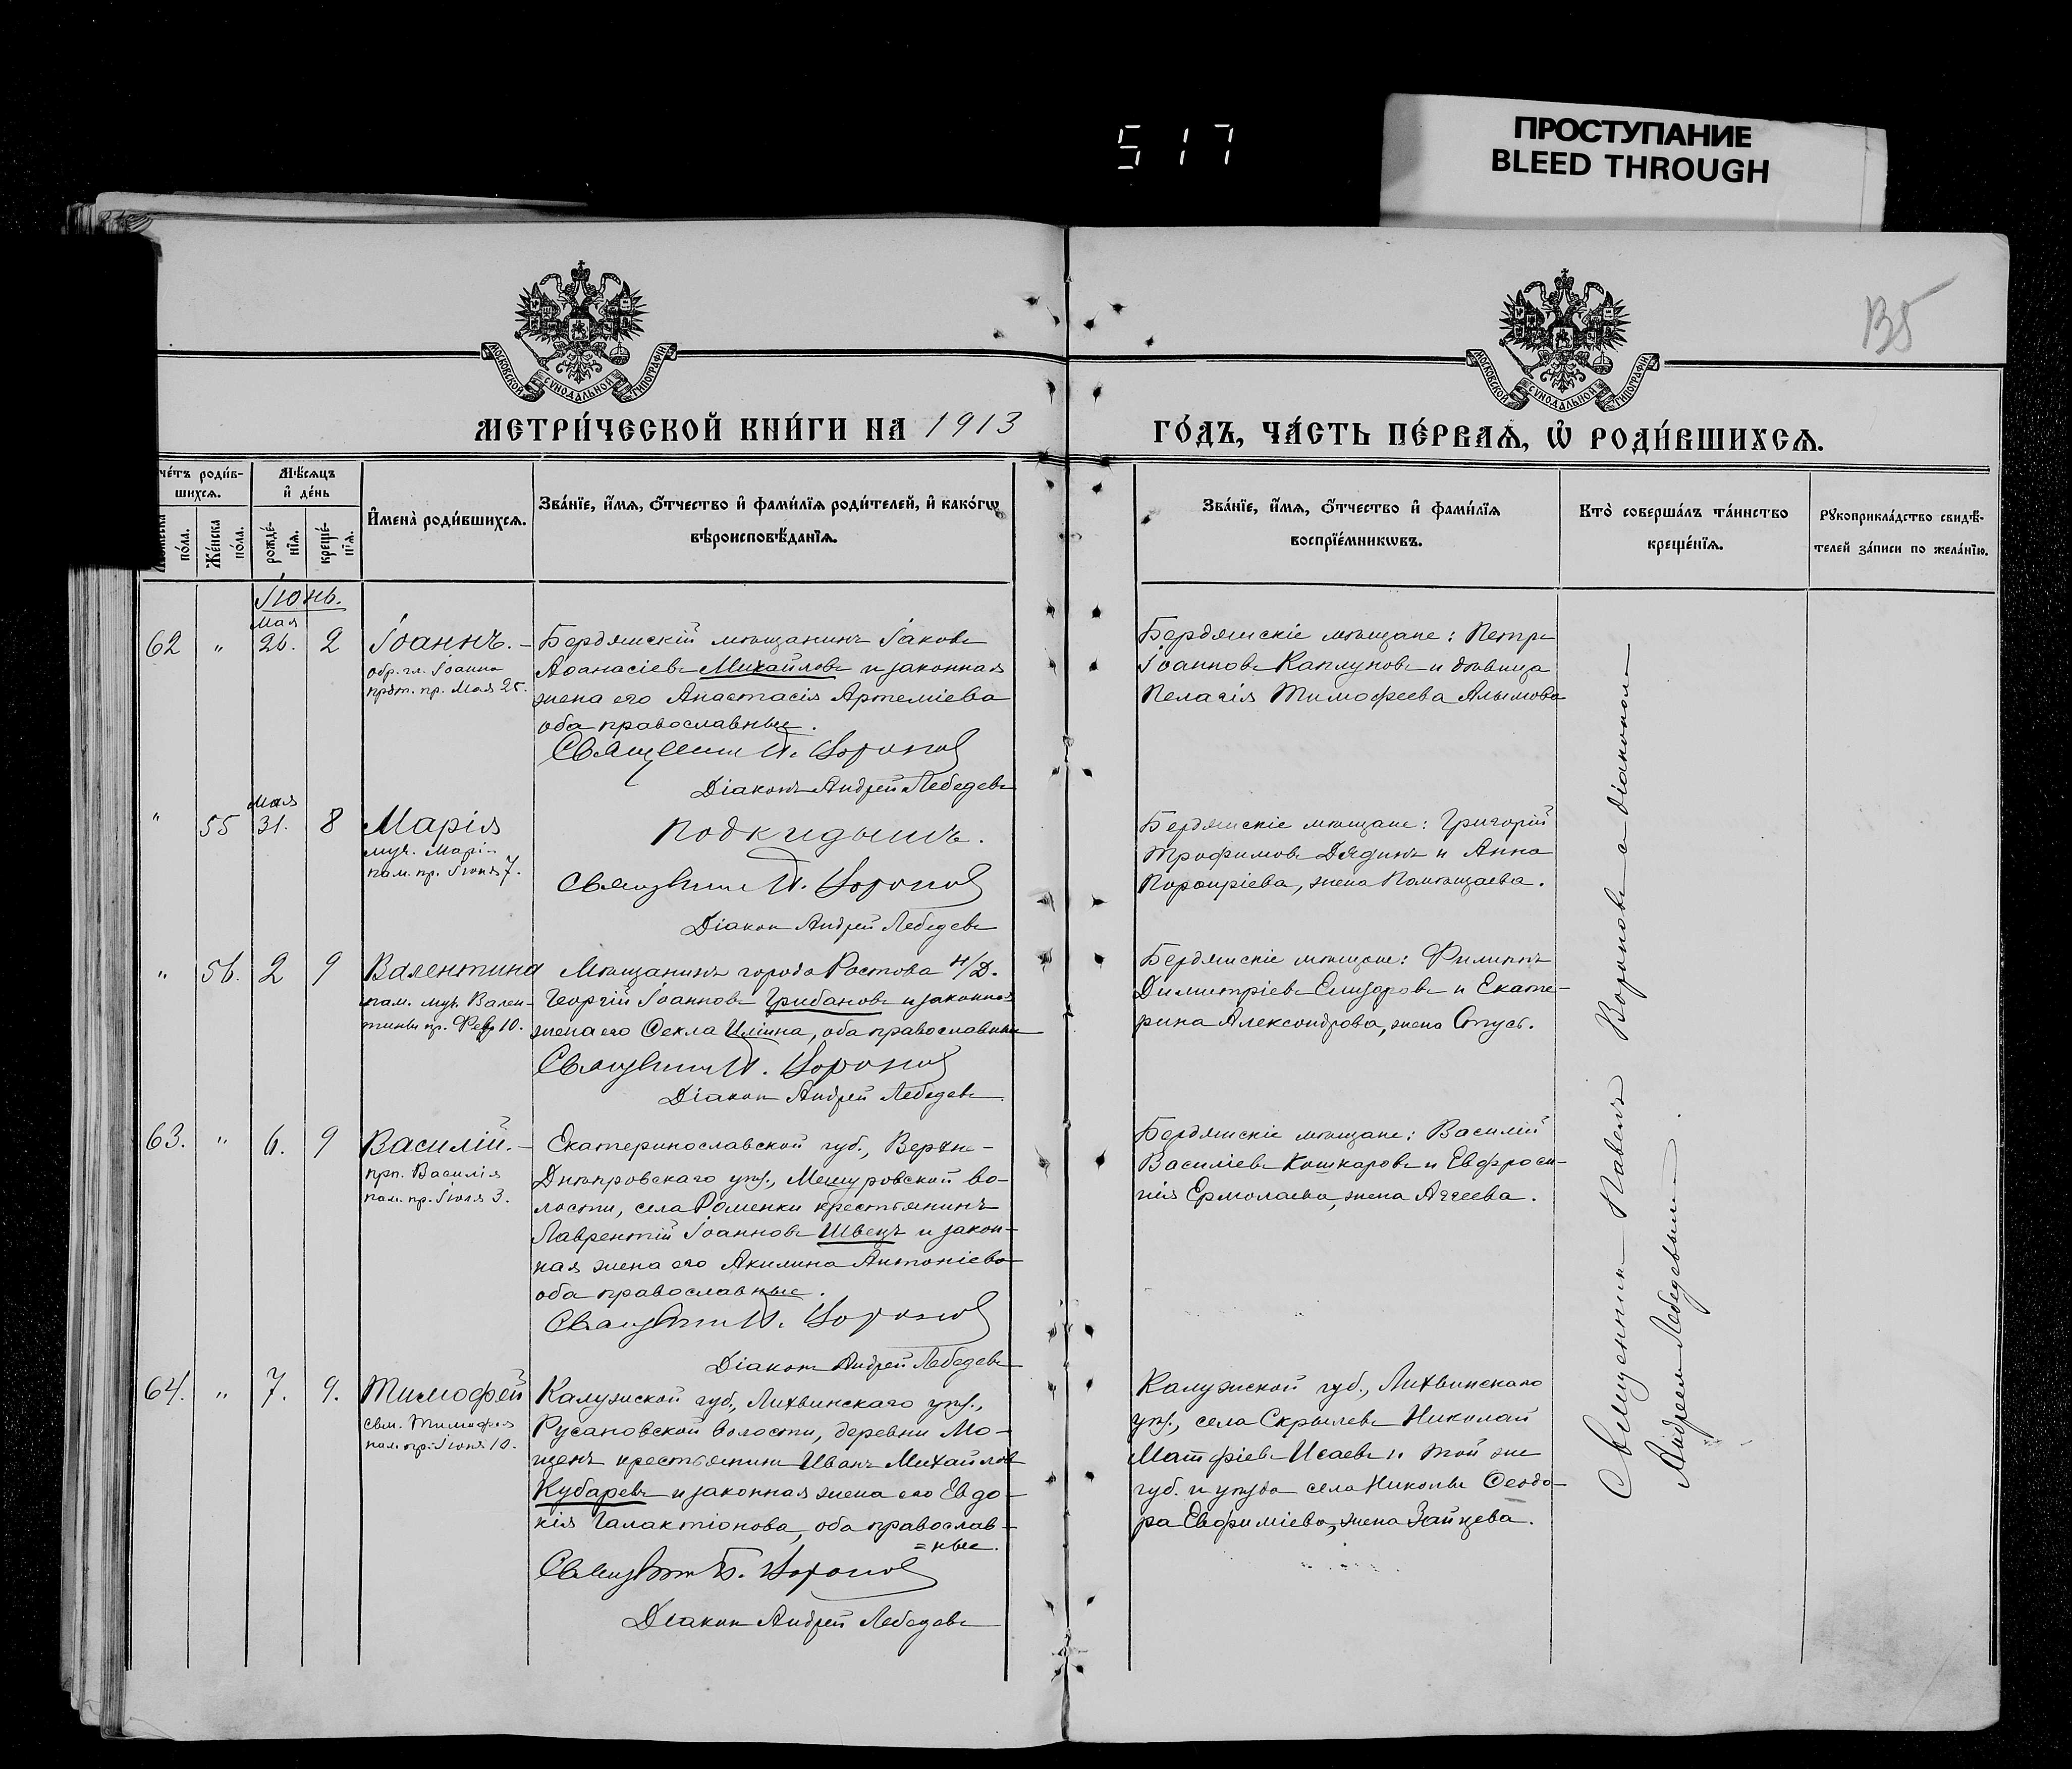 517
ПРОСТУПАНИЕ
BLEED THROUGH
135
МОСКОВСКОЙ СУНОДАЛЬНОЙ ТИПОГРАФІИ
МОСКОВСКОЙ СУНОДАЛЬНОЙ ТИПОГРАФІИ
МЕТРИ́ЧЕСКОЙ КНИ́ГИ НА 1913
ГО́ДЪ, ЧА́СТЬ ПЕ́РВАЯ, Ѡ РОДИ́ВШИХСЯ.
че́тъ роди́в-
шихся.
Мѣ́сяцъ
и҆ де́нь
по́ла.
Же́нска
по́ла.
рожде́-
нїя.
креще́-
нїя.
И҆мена̀ роди́вшихся.
Зва́нїе, и҆́мя, ѻ҆́тчество и҆ фами́лїя роди́телей, и҆ како́гѡ
вѣроисповѣ́данїя.
Зва́нїе, и҆́мя, ѻ҆́тчество и҆ фами́лїя
воспрїе́мникѡвъ.
Кто̀ соверша́лъ та́инство
креще́нїя.
Рꙋкоприкла́дство свидѣ́-
телей за́писи по жела́нїю.
Іюнь.
Мая
62 " 26. 2 Іоаннъ.-
обр. гл. Іоанна
прдт. пр. Мая 25.
Бердянскій мѣщанинъ Іаковъ
Аѳанасіевъ Михайловъ и законная
жена его Анастасія Артеміева
оба православные.
Священн. П. Вороновъ
Діаконъ Андрей Лебедевъ
Бердянскіе мѣщане: Петръ
Іоанновъ Каплуновъ и дѣвица
Пелагія Тимофеева Алымова
Мая
" 55 31. 8 Марія
муч. Маріи
пам. пр. Іюня 7.
Подкидышъ.
Священн. П. Вороновъ
Діаконъ Андрей Лебедевъ
Бердянскіе мѣщане: Григорій
Трофимовъ Дядинъ и Анна
Порфиріева, жена
" 56. 2 9 Валентина
пам. муч. Вален-
тины пр. Фев 10.
Мѣщанинъ города Ростова н/Д.
Георгій Іоанновъ Грибановъ и законная
жена его Ѳекла Иліина, оба православные
Священн. П. Вороновъ
Діаконъ Андрей Лебедевъ
Бердянскіе мѣщане: Филиппъ
Димитріевъ Елизаровъ и Екате-
рина Александрова, жена
63. " 6. 9 Василій.-
прп. Василія
пам. пр. Іюля 3.
Екатеринославской губ., Верхне-
Днѣпровскаго уѣз., Мешуровской во-
лости, села Роменки крестьянинъ
Лаврентій Іоанновъ Швецъ и закон-
ная жена его Акилина Антоніева
оба православные.
Священн. П. Вороновъ
Діаконъ Андрей Лебедевъ
Бердянскіе мѣщане: Василій
Василіевъ Кошкаровъ и Евфроси-
нія Ермолаева, жена Аггеева.
64. " 7. 9. Тимофей
свм. Тимофея
пам. пр. Іюня 10.
Калужской губ., Лихвинскаго уѣз.,
Русановской волости, деревни Мо-
щенъ крестьянинъ Иванъ Михайловъ
Кубаревъ и законная жена его Евдо-
кія Галактіонова, оба православ-
=ные.
Священн. П. Вороновъ
Діаконъ Андрей Лебедевъ
Калужской губ., Лихвинскаго
уѣз., села Скрылевъ Николай
Матфіевъ Исаевъ и той же
губ. и уѣзда села Николы Ѳеодо-
ра Евфиміева, жена Зайцева.
Священникъ Павелъ Вороновъ съ діакономъ
Андреемъ Лебедевымъ.